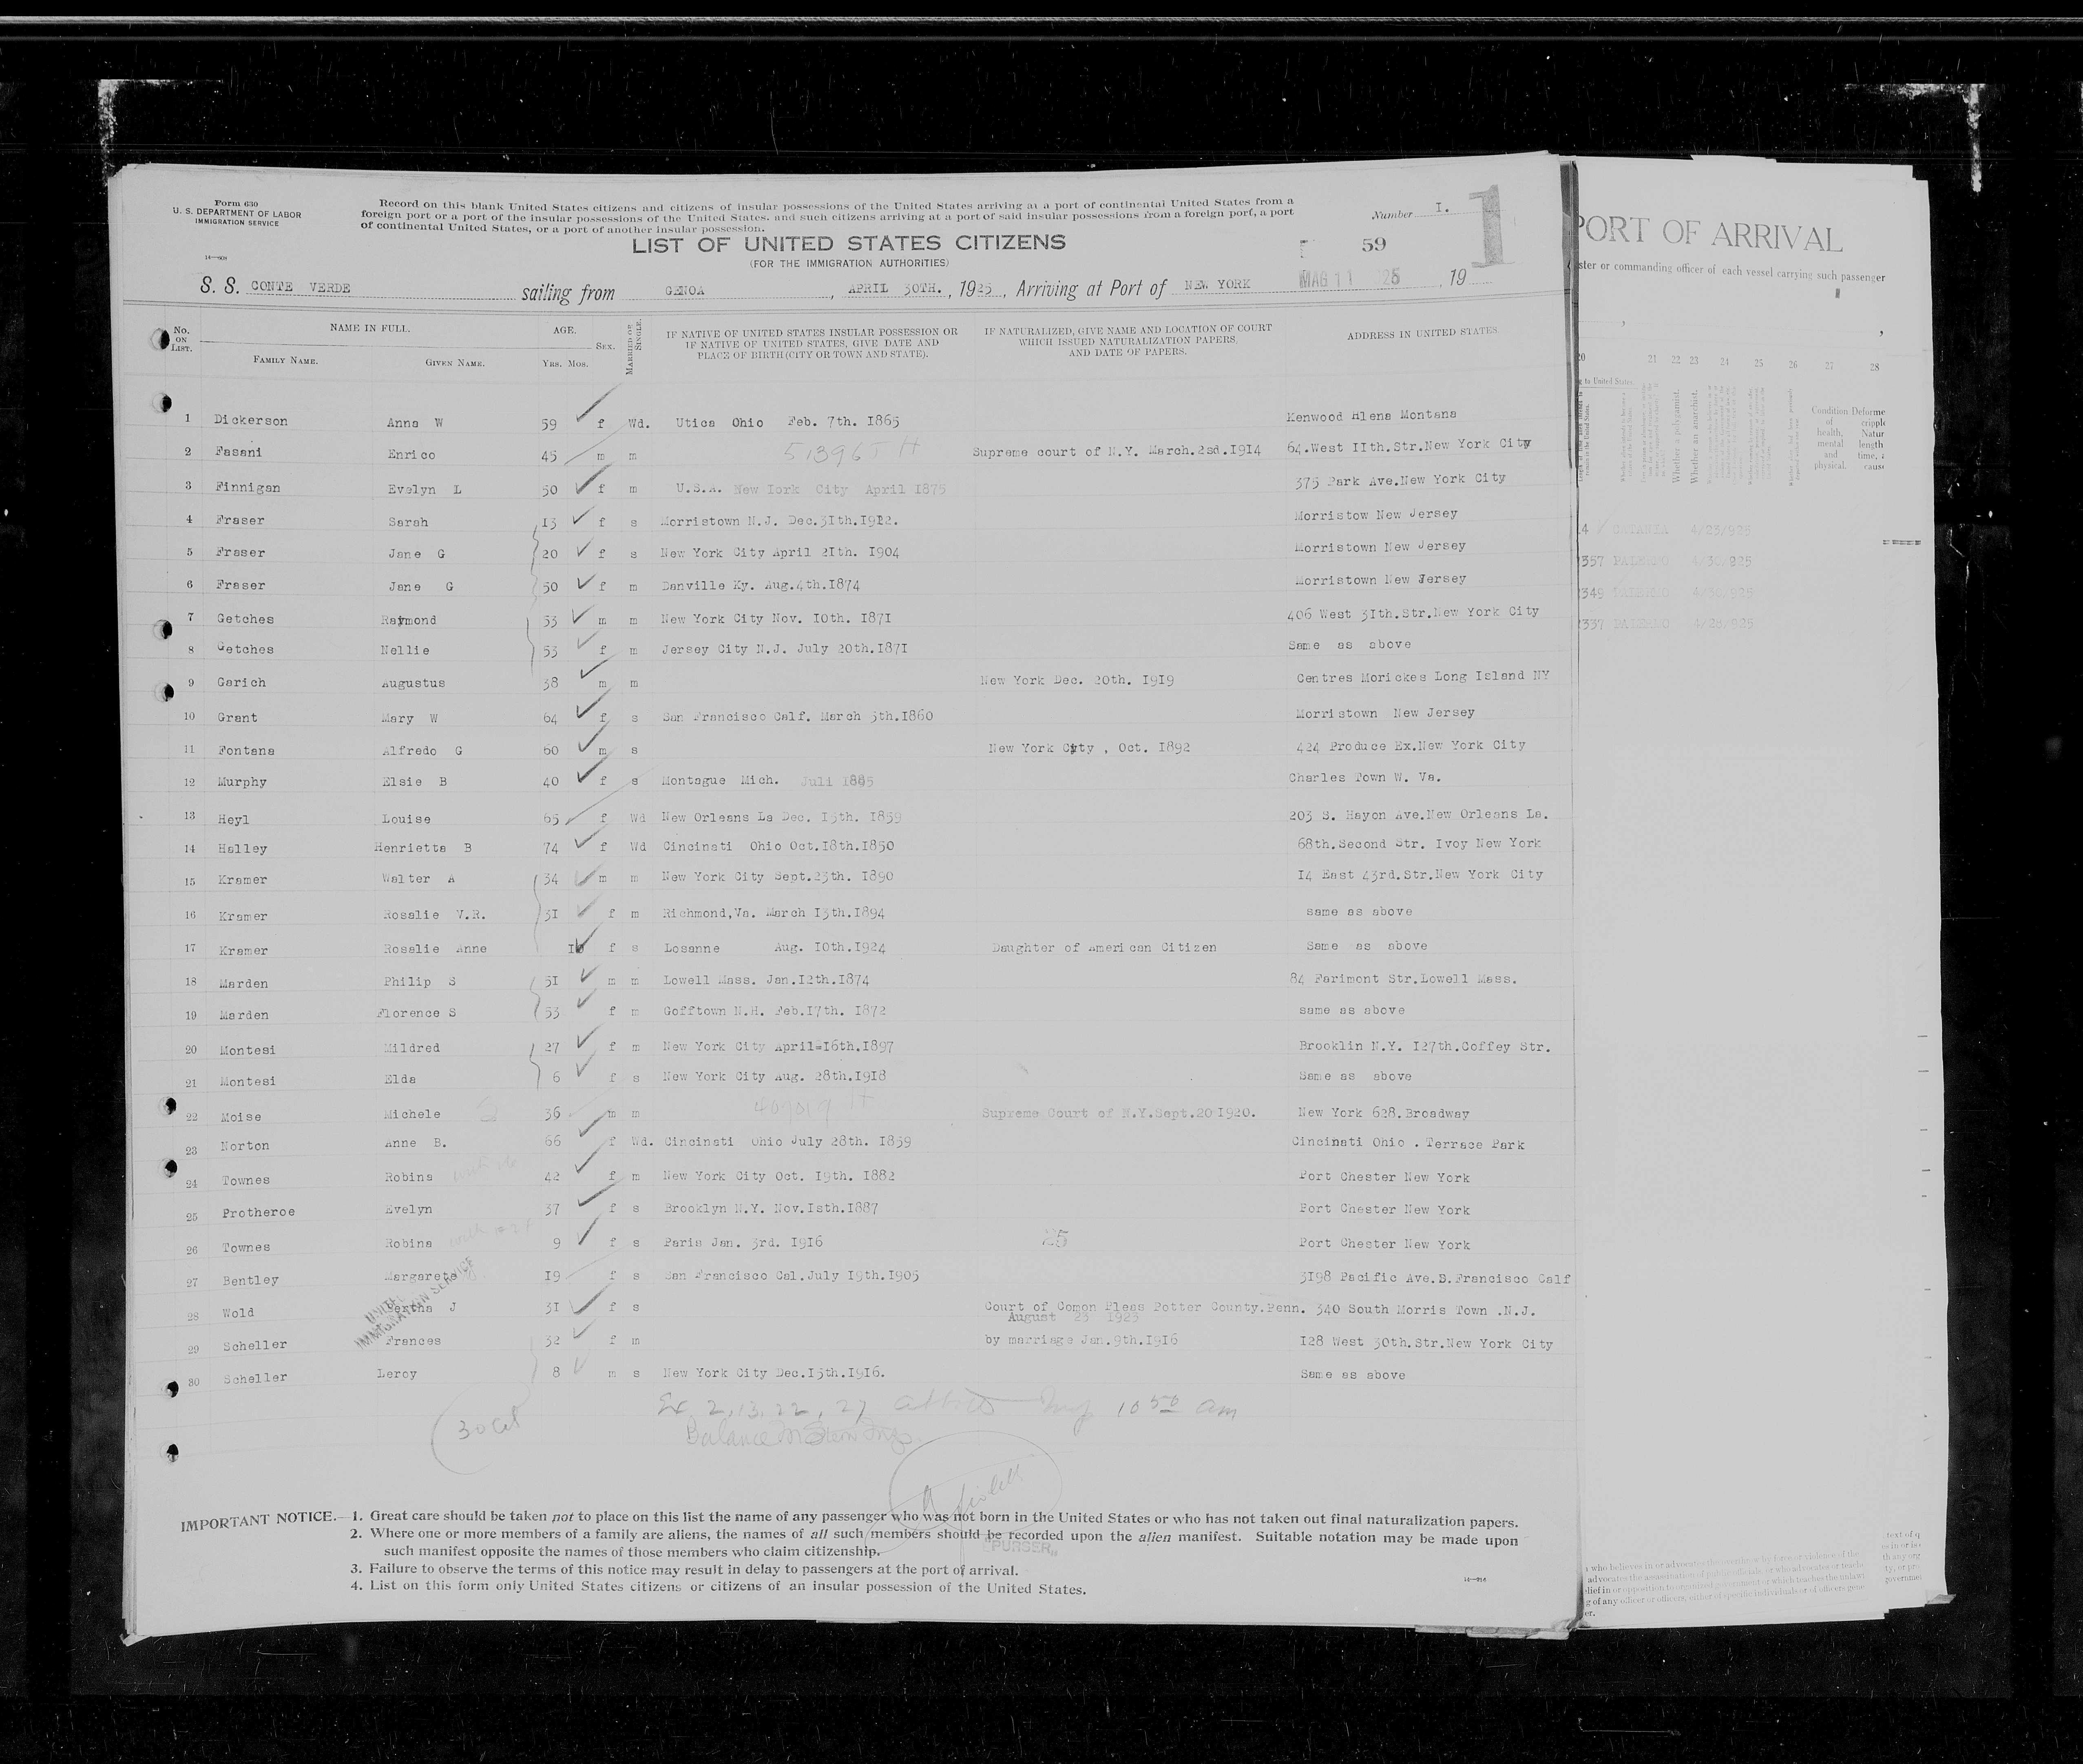 Form 630
U. S. DEPARTMENT OF LABOR
IMMIGRATION SERVICE
Record on this blank United States citizens and citizens of insular possessions of the United States arriving at a port of continental United States from a
foreign port or a port of the insular possessions of the United States, and such citizens arriving at a port of said insular possessions from a foreign port, a port
of continental United States, or a port of another insular possession.
Number I.
1
LIST OF UNITED STATES CITIZENS
(FOR THE IMMIGRATION AUTHORITIES)
59
S. S. CONTE VERDE sailing from GENOA, APRIL 30TH., 1925, Arriving at Port of NEW YORK MAG 11 925, 19
No. ON LIST.
NAME IN FULL.
FAMILY NAME. GIVEN NAME.
AGE.
YRS. MOS.
SEX.
MARRIED OR SINGLE.
IF NATIVE OF UNITED STATES INSULAR POSSESSION OR
IF NATIVE OF UNITED STATES, GIVE DATE AND
PLACE OF BIRTH (CITY OR TOWN AND STATE).
IF NATURALIZED, GIVE NAME AND LOCATION OF COURT
WHICH ISSUED NATURALIZATION PAPERS,
AND DATE OF PAPERS.
ADDRESS IN UNITED STATES
1 Dickerson Anna W 59 f Wd. Utica Ohio Feb. 7th. I865 Kenwood Hlena Montana
2 Fasani Enrico 45 m m Supreme court of N.Y. March.2sd.I914 64.West IIth.Str.New York City
3 Finnigan Evelyn L 50 f m U.S.A. New York City April I875 375 Park Ave.New York City
4 Fraser Sarah I3 f s Morristown N.J. Dec.3Ith.I912. Morristow New Jersey
5 Fraser Jane G 20 f s New York City April 2Ith. I904 Morristown New Jersey
6 Fraser Jane G 50 f m Danville Ky. Aug.4th.I874 Morristown New Jersey
7 Getches Raymond 53 m m New York City Nov. I0th. I87I 406 West 3Ith.Str.New York City
8 Getches Nellie 53 f m Jersey City N.J. July 20th.I87I Same as above
9 Garich Augustus 38 m m New York Dec. 20th. I9I9 Centres Morickes Long Island NY
10 Grant Mary W 64 f s San Francisco Calf. March 5th.I860 Morristown New Jersey
11 Fontana Alfredo G 60 m s New York City , Oct. I892 424 Produce Ex.New York City
12 Murphy Elsie B 40 f s Montague Mich. Juli I885 Charles Town W. Va.
13 Heyl Louise 65 f Wd New Orleans La Dec. I5th. I859 203 S. Hayon Ave.New Orleans La.
14 Halley Henrietta B 74 f Wd Cincinati Ohio Oct.I8th.I850 68th.Second Str. Ivoy New York
15 Kramer Walter A 34 m m New York City Sept.23th. I890 I4 East 43rd.Str.New York City
16 Kramer Rosalie V.R. 3I f m Richmond,Va. March I3th.I894 same as above
17 Kramer Rosalie Anne f s Losanne Aug. I0th.I924 Daughter of American Citizen Same as above
18 Marden Philip S 5I m m Lowell Mass. Jan.I2th.I874 84 Farimont Str.Lowell Mass.
19 Marden Florence S 53 f m Gofftown N.H. Feb.I7th. I872 same as above
20 Montesi Mildred 27 f m New York City April=I6th.I897 Brooklin N.Y. I27th.Coffey Str.
21 Montesi Elda 6 f s New York City Aug. 28th.I9I8 Same as above
22 Moise Michele 36 m m Supreme Court of N.Y.Sept.20 I920. New York 628.Broadway
23 Norton Anne B. 66 f Wd. Cincinati Ohio July 28th. I859 Cincinati Ohio . Terrace Park
24 Townes Robina 42 f m New York City Oct. I9th. I882 Port Chester New York
25 Protheroe Evelyn 37 f s Brooklyn N.Y. Nov.Isth.I887 Port Chester New York
26 Townes Robina 9 f s Paris Jan. 3rd. I9I6 25 Port Chester New York
27 Bentley Margareta I9 f s San Francisco Cal.July I9th.I905 3I98 Pacific Ave.S.Francisco Calf
28 Wold Bertha J 3I f s Court of Comon Pleas Potter County.Penn. 340 South Morris Town .N.J.
August 23 1923
29 Scheller Frances 32 f m by marriage Jan.9th.I9I6 I28 West 30th.Str.New York City
30 Scheller Leroy 8 m s New York City Dec.I5th.I9I6. Same as above
IMMIGRATION SERVICE
Ex 2, 13, 22, 27 10 50 am
30
Balance
PURSER
IMPORTANT NOTICE.—1. Great care should be taken not to place on this list the name of any passenger who was not born in the United States or who has not taken out final naturalization papers.
2. Where one or more members of a family are aliens, the names of all such members should be recorded upon the alien manifest. Suitable notation may be made upon
such manifest opposite the names of those members who claim citizenship.
3. Failure to observe the terms of this notice may result in delay to passengers at the port of arrival.
4. List on this form only United States citizens or citizens of an insular possession of the United States.
PORT OF ARRIVAL
ster or commanding officer of each vessel carrying such passenger
20 21 22 23 24 25 26 27 28
Whether a polygamist.
Whether an anarchist.
Condition of health, mental and physical.
4 CATANIA 4/23/925
357 PALERMO 4/30/925
349 PALERMO 4/30/925
337 PALERMO 4/28/925